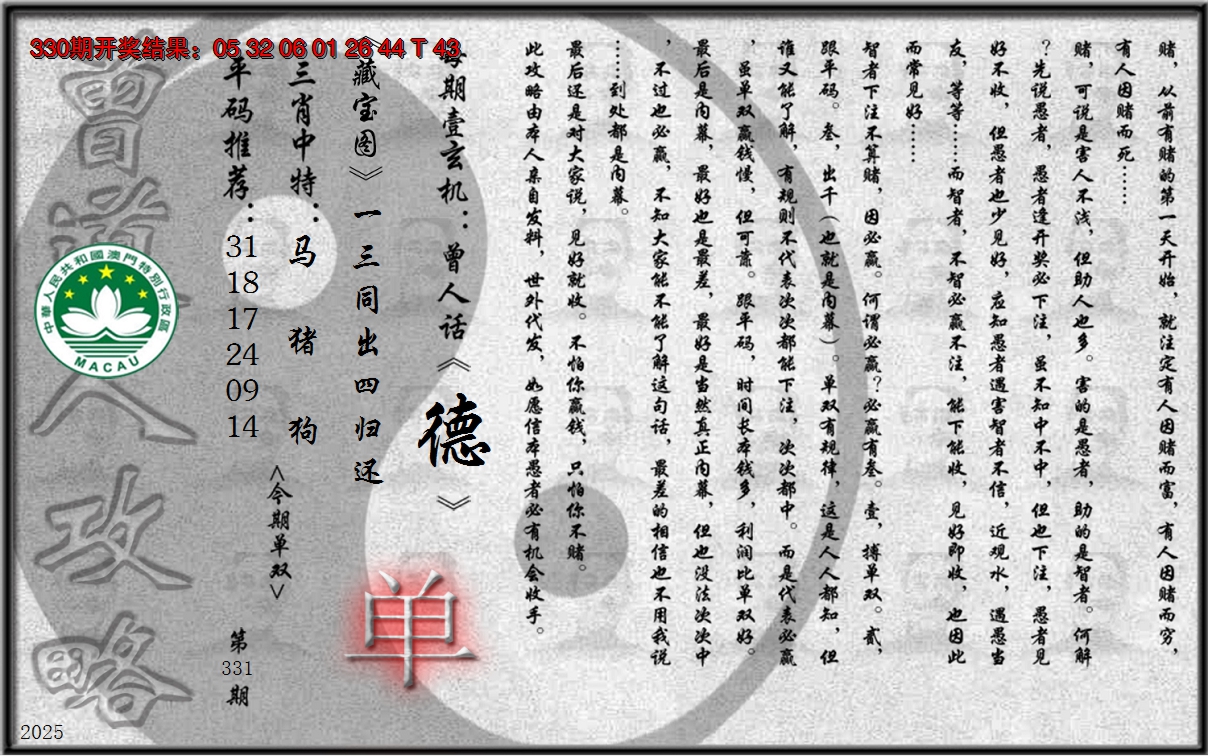 330期开奖结果：05 32 06 01 26 44 T 43
赌，从前有赌的第一天开始，就注定有人因赌而富，有人因赌而穷，
有人因赌而死……
赌，可说是害人不浅，但助人也多。害的是愚者，助的是智者。何解
？先说愚者，愚者逢开奖必下注，虽不知中不中，但也下注，愚者见
好不收，但愚者也少见好，应知愚者遇害智者不信，近观水，遇愚当
友，等等……而智者，不智必赢不注，能下能收，见好即收，也因此
而常见好……
智者下注不算赌，因必赢。何谓必赢？必赢有叁。壹，搏单双。贰，
跟平码。叁，出千（也就是内幕）。单双有规律，这是人人都知，但
谁又能了解，有规则不代表次次都能下注，次次都中。而是代表必赢
，虽单双赢钱慢，但可靠。跟平码，时间长本钱多，利润比单双好。
最后是内幕，最好也是最差，最好是当然真正内幕，但也没法次次中
，不过也必赢，不知大家能不能了解这句话，最差的相信也不用我说
……到处都是内幕。
最后还是对大家说，见好就收。不怕你赢钱，只怕你不赌。
此攻略由本人亲自发料，世外代发，如愿信本愚者必有机会收手。
每期壹玄机：曾人话《德》
《藏宝图》一三同出四归还
单
三肖中特：马 猪 狗
<今期单双>
平码推荐：31 18 17 24 09 14
第331期
曾道人攻略
中華人民共和國澳門特別行政區
MACAU
2025